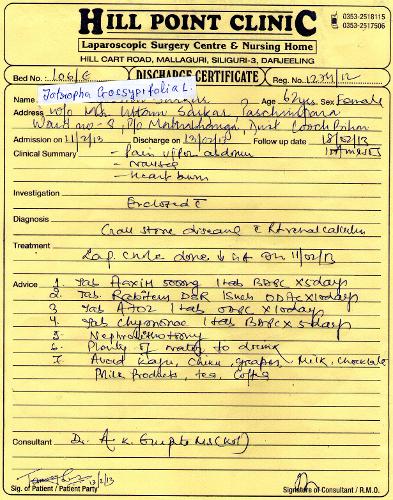 HILL POINT CLINIC
0353-2518115
0353-2517506
Laparoscopic Surgery Centre & Nursing Home
HILL CART ROAD, MALLAGURI, SILIGURI-3, DARJEELING
Bed No.: 106/E DISCHARGE CERTIFICATE Reg. No. 1274/12
Jatropha Gossypifolia L.
Name Age 62 yrs Sex Female
Address W/o Mr. Uttam Sarkar, Paschimpara
Ward no-8, P/o Mathabhanga, Dist Coochbihar
Admission on 11/2/13 Discharge on 13/02/13 Follow up date 18/02/13
Clinical Summary - Pain upper abdomen
- Nausea
- Heart burn
Investigation Enclosed
Diagnosis Gall stone disease c Rt renal calculus
Treatment Lap. chole done ↓ GA on 11/02/13
Advice 1. Tab 500mg 1 tab BDPC x 5 days
2. Tab. DSR 1 ODAC x 10 days
3 Tab 1 tab ODPC x 10 days
4. Tab 1 tab BDPC x 5 days
5. Nephrolithotomy
6. Plenty of water to drink
7. Avoid Kaju, Chiku, grapes, Milk, Chocolate
Milk Products, tea, Coffee
Consultant Dr. A. K. Gupta MS (Kol)
13/2/13
Sig. of Patient / Patient Party Signature of Consultant / R.M.O.